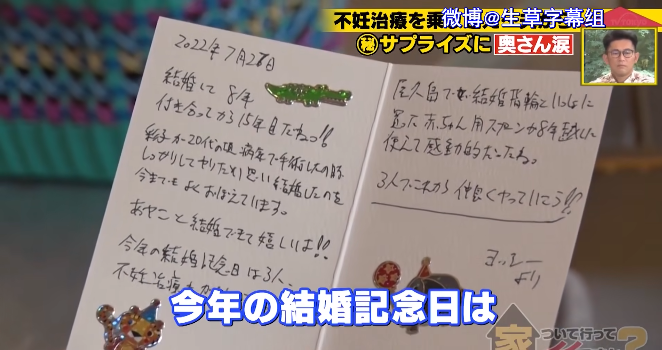 不妊治療を乗
微博@生草字幕组
㊙サプライズに 奥さん涙
2022年7月28日
結婚して 8年
付き合ってから15年目だねっ!!
彩子が20代の頃、病気で手術したの時
しっかりしてやりたいと思い結婚したのを
今でもよくおぼえています。
あやこと結婚できて嬉しいよ!!
今年の結婚記念日は3人、
不妊治療
屋久島で 結婚指輪といっしょに
買った赤ちゃん用スプーンが8年越しに
使えて感動的だったね。
3人でこれから仲良くやっていこう!!
ヨッシー
より
今年の結婚記念日は
家、ついて行って